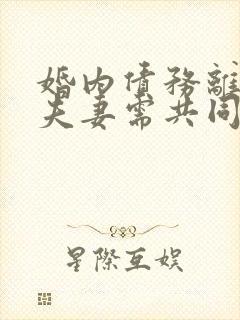 婚內債務離
夫妻需共同
星際互娛